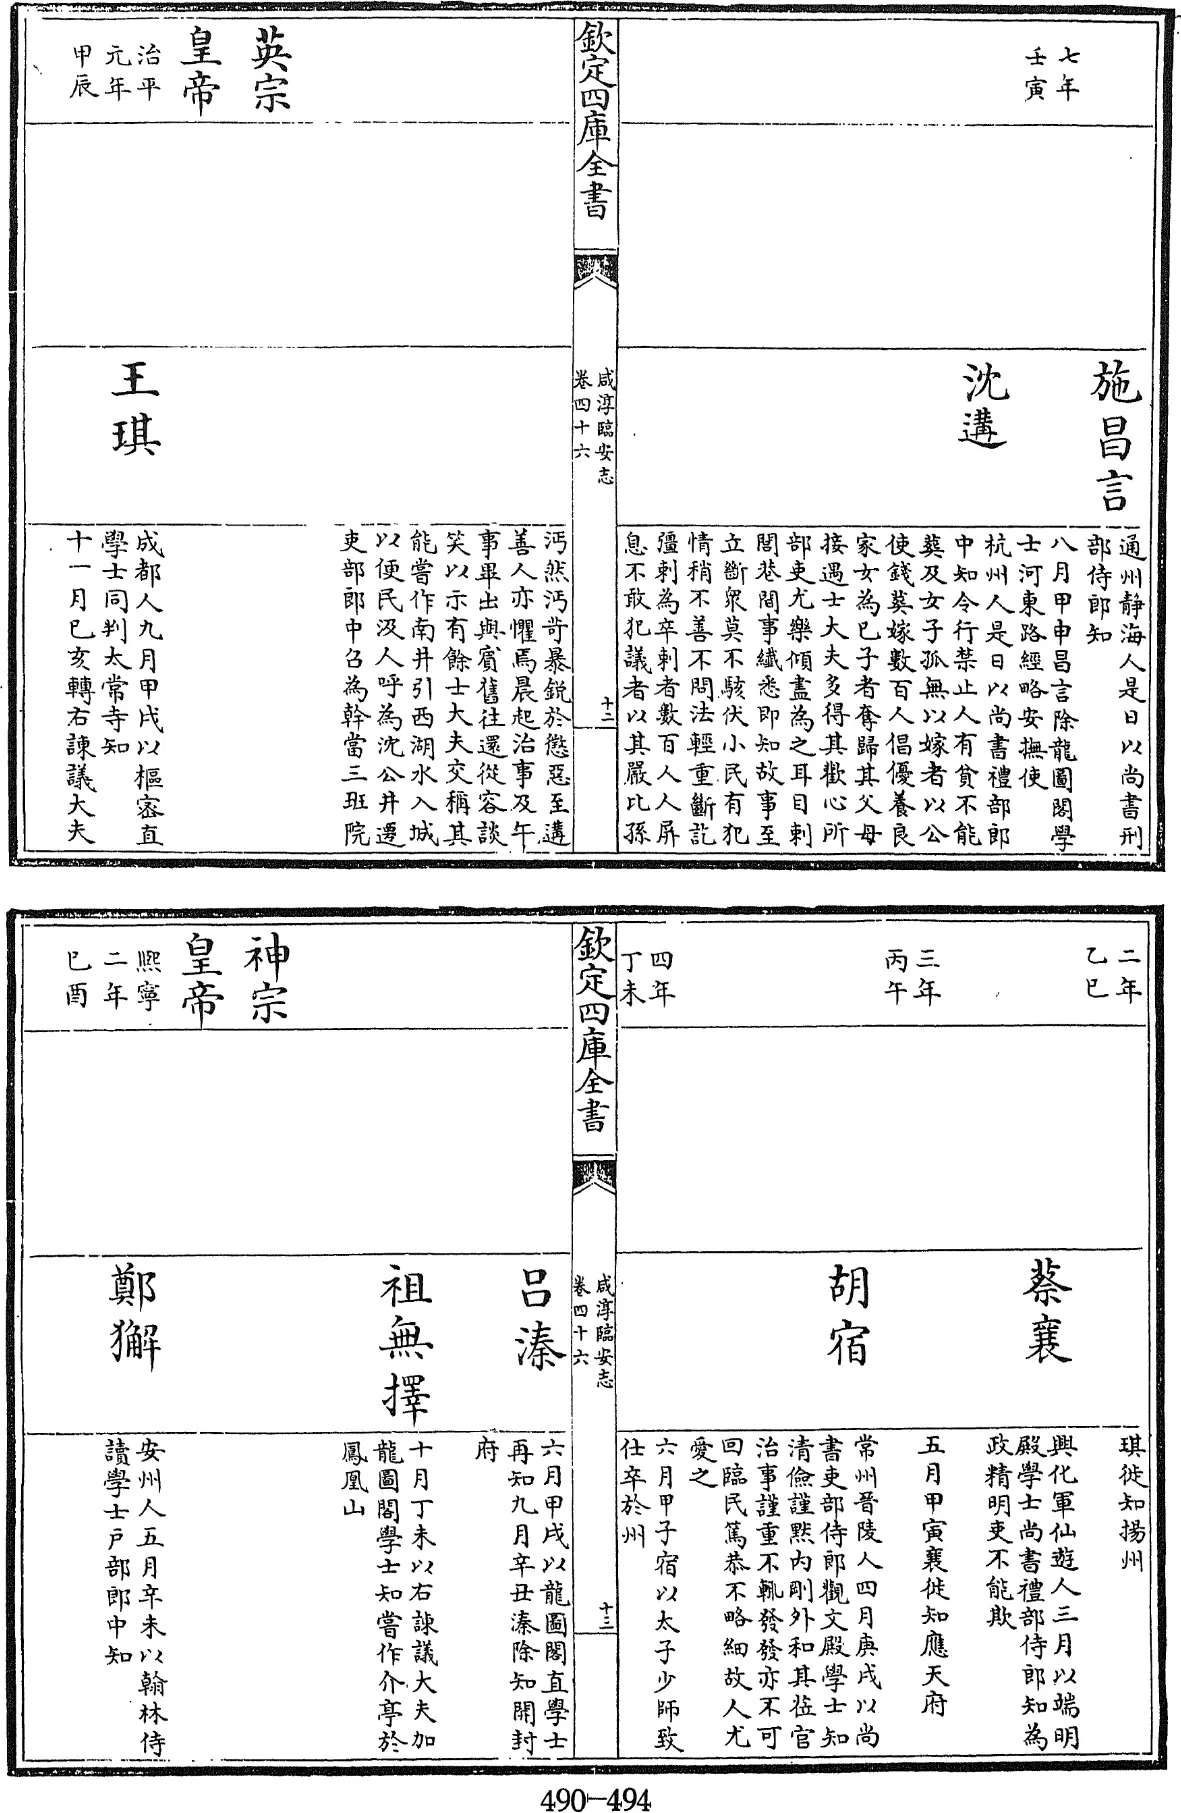 七年
壬寅
施昌言
通州静海人是日以尚書刑
部侍郎知
八月甲申昌言除龍圖閣學
士河東路經略安撫使
沈遘
杭州人是日以尚書禮部郎
中知令行禁止人有貧不能
葬及女子孤無以嫁者以公
使錢葬嫁數百人倡優養良
家女為已子者奪歸其父母
接遇士大夫多得其歡心所
部吏尤樂傾盡為之耳目刺
閭巷間事纎悉即知故事至
立斷衆莫不駭伏小民有犯
情稍不善不問法輕重斷訖
彊刺為卒刺者數百人人屏
息不敢犯議者以其嚴比孫
欽定四庫全書
咸淳臨安志
卷四十六
十二
沔然沔苛暴銳於懲惡至遘
善人亦懼焉晨起治事及午
事畢出與賓舊往還從容談
笑以示有餘士大夫交稱其
能嘗作南井引西湖水入城
以便民汲人呼為沈公井遷
吏部郎中召為幹當三班院
英宗
皇帝
治平
元年
甲辰
王琪
成都人九月甲戌以樞密直
學士同判太常寺知
十一月已亥轉右諫議大夫
二年
乙巳
琪徙知揚州
蔡襄
興化軍仙遊人三月以端明
殿學士尚書禮部侍郎知為
政精明吏不能欺
三年
丙午
五月甲寅襄徙知應天府
胡宿
常州晉陵人四月庚戌以尚
書吏部侍郎觀文殿學士知
清儉謹黙内剛外和其莅官
治事謹重不輒發發亦不可
回臨民篤恭不略細故人尤
愛之
四年
丁未
六月甲子宿以太子少師致
仕卒於州
欽定四庫全書
咸淳臨安志
卷四十六
十三
吕溱
六月甲戌以龍圖閣直學士
再知九月辛丑溱除知開封
府
祖無擇
十月丁未以右諫議大夫加
龍圖閣學士知嘗作介亭於
鳳凰山
神宗
皇帝
熙寧
二年
已酉
鄭獬
安州人五月辛未以翰林侍
讀學士戸部郎中知
490-494